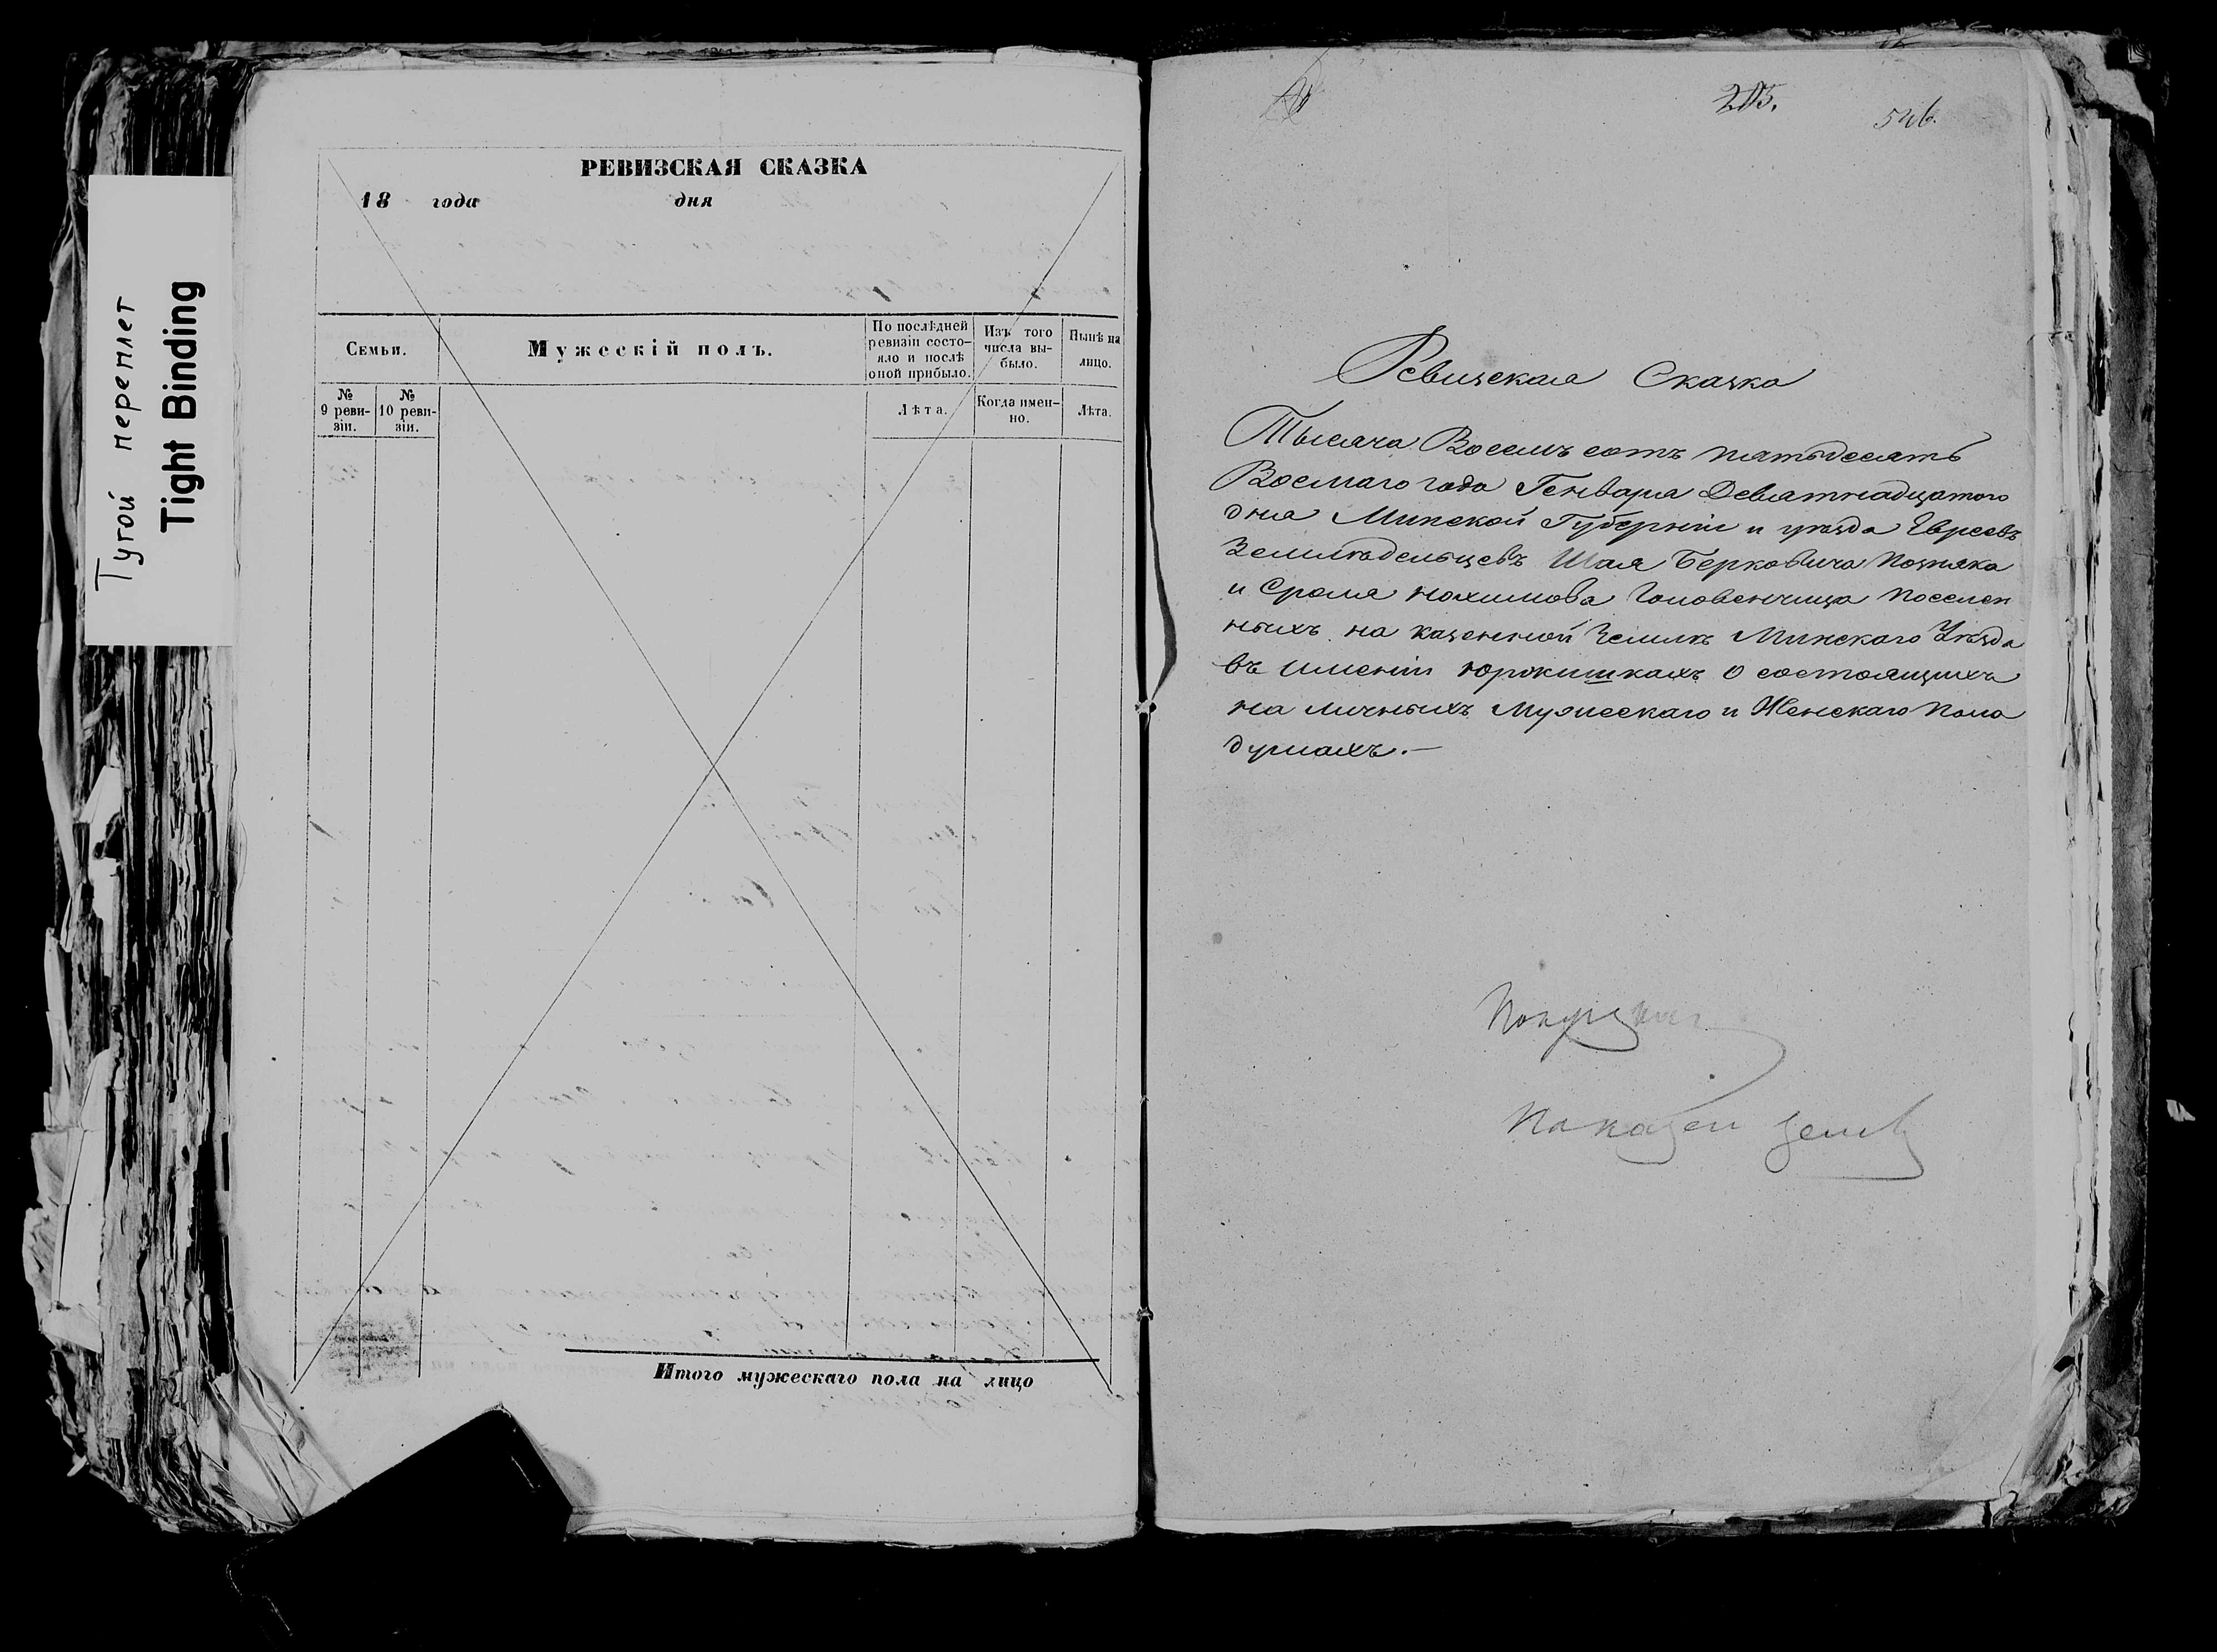 Тугой переплет
Tight Binding
РЕВИЗСКАЯ СКАЗКА
18 года дня
Семьи.
Мужескій полъ.
По послѣдней
ревизіи состо-
яло и послѣ
оной прибыло.
Изъ того
числа вы-
было.
Нынѣ на
лицо.
№
9 реви-
зіи.
№
10 реви-
зіи.
Лѣта.
Когда имен-
но.
Лѣта.
Итого мужескаго пола на лицо
205.
546.
Ревизская Сказка
Тысяча Восемь сотъ пятьдесятъ
Восмаго года Генваря Девятнадцатого
дня Минской Губерніи и уѣзда Евреевъ
Земледѣльцевъ Шая Берковича Позняка
и Сроля Нохимова Головенчица поселен
ныхъ на казенной Землѣ Минскаго Уѣзда
въ имѣніи Юркишкахъ о состоящихъ
на личныхъ Мужескаго и Женскаго пола
душахъ.—